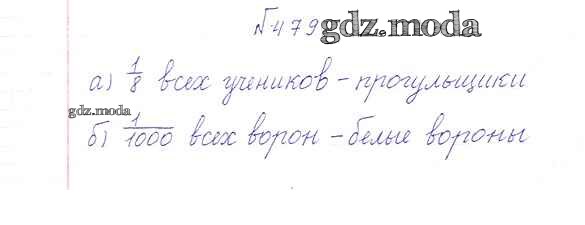 №479
gdz.moda
а) 1/8 всех учеников – прогульщики
gdz.moda
б) 1/1000 всех ворон – белые вороны